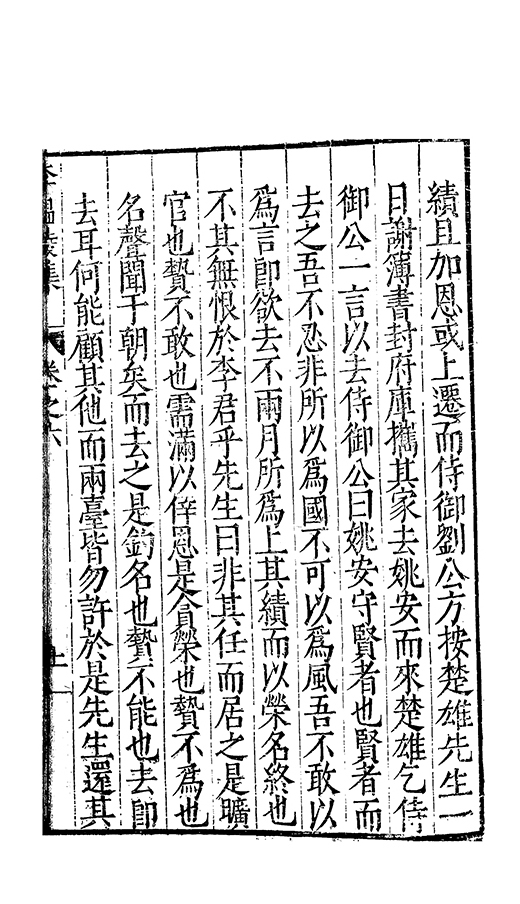 績且加恩或上遷而侍御劉公方按楚雄先生一
日謝簿書封府庫攜其家去姚安而來楚雄乞侍
御公一言以去侍御公曰姚安守賢者也賢者而
去之吾不忍非所以為國不可以為風吾不敢以
為言即欲去不兩月所為上其績而以榮名終也
不其無恨於李君乎先生曰非其任而居之是曠
官也贄不敢也需滿以倖恩是貪榮也贄不為也
名聲聞于朝矣而去之是釣名也贄不能也去即
去耳何能顧其他而兩臺皆勿許於是先生還其
李溫陵集
卷之六